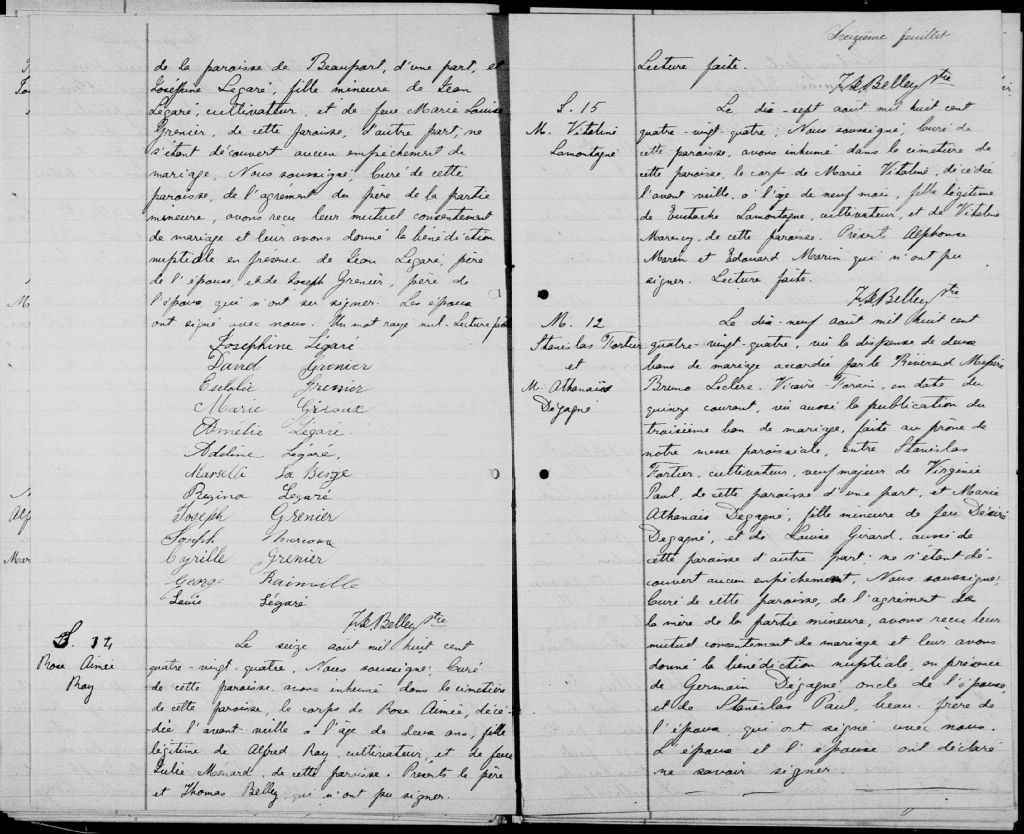 de la paroisse de Beauport, d'une part, et
Joséphine Legaré, fille mineure de Jean
Légaré, cultivateur, et de feue Marie Louise
Grenier, de cette paroisse, d'autre part, ne
s'étant découvert aucun empêchement de
mariage, Nous soussigné, Curé de cette
paroisse, de l'agrément du père de la partie
mineure, avons reçu leur mutuel consentement
de mariage et leur avons donné la bénédiction
nuptiale en présence de Jean Légaré, père
de l'épouse, et de Joseph Grenier, père de
l'époux, qui n'ont su signer. Les époux
ont signé avec nous. Un mot rayé nul. Lecture faite
Josephine Légaré
David Grenier
Eulalie Grenier
Marie Giroux
Amélie Légaré.
Adeline Légaré,
Marselli La Berge
Regina Legaré
Joseph Grenier
Joseph
Cyrille Grenier
George Rainville
Louis Légaré
F. X. Belley Ptre
S. 14
Rose Aimée
Roy
Le seize aout mil huit cent
quatre-vingt-quatre, Nous soussigné, Curé
de cette paroisse, avons inhumé dans le cimetière
de cette paroisse, le corps de Rose Aimée, décé-
dée l'avant-veille à l'âge de deux ans, fille
légitime de Alfred Roy, cultivateur, et de feue
Julie Ménard, de cette paroisse. Présents le père
et Thomas Belley, qui n'ont pu signer.
Treizième feuillet
Lecture faite.
F. X. Belley Ptre
S. 15
M. Vitaliné
Lamontagne
Le dix-sept août mil huit cent
quatre-vingt-quatre, Nous soussigné, Curé de
cette paroisse, avons inhumé dans le cimetière de
cette paroisse, le corps de Marie Vitaliné, décédée
l'avant veille, à l'âge de neuf mois, fille légitime
de Eustache Lamontagne, cultivateur, et de Vitaline
de cette paroisse. Présents Alphonse
Marin et Edouard Marin qui n'ont pu
signer. Lecture faite.
F. X. Belley Ptre
M. 12
Stanislas Fortier
et
M. Athanais
Dégagné
Le dix-neuf août mil huit cent
quatre-vingt-quatre, vu la dispense de deux
bans de mariage accordée par le Révérend Messire
Bruno Leclerc, Vicaire Forain, en date du
quinze courant, vu aussi la publication du
troisième ban de mariage, faite au prône de
notre messe paroissiale, entre Stanislas
Fortier, cultivateur, veuf majeur de Virginie
Paul, de cette paroisse d'une part, et Marie
Athanais Dégagné, fille mineure de feu Désiré
Dégagné, et de Louise Girard, aussi de
cette paroisse d'autre part, ne s'étant dé-
couvert aucun empêchement, Nous soussigné,
Curé de cette paroisse, de l'agrément de
la mère de la partie mineure, avons reçu leur
mutuel consentement de mariage et leur avons
donné la bénédiction nuptiale, en présence
de Germain Dégagné, oncle de l'épouse,
et de Stanislas Paul, beau-frère de
l'époux, qui ont signé avec nous.
L'époux et l'épouse ont déclaré
ne savoir signer